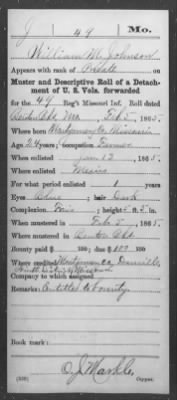 J 49 Mo.
William M. Johnson
Appears with rank of Private
Muster and Descriptive Roll of a Detach-
ment of U. S. Vols. forwarded
for the 49 Reg't Missouri Inf. Roll dated
Benton Bks Mo., Feb 5, 1865.
Where born Montgomery Co Missouri
Age 24 y'rs; occupation Farmer
When enlisted Jan 12, 1865.
Where enlisted Mexico
For what period enlisted 1 years
Eyes Blue; hair Dark
Complexion Fair; height 5 ft. 5 in.
When mustered in Feb 5, 1865.
Where mustered in Benton Bks
Bounty paid $ 100; due $ 100
Where credited Montgomery Co, Danville,
Missouri
Company to which assigned
Remarks: Entitled to bounty
Book mark:
O. J. Markle
(339) Copyist.